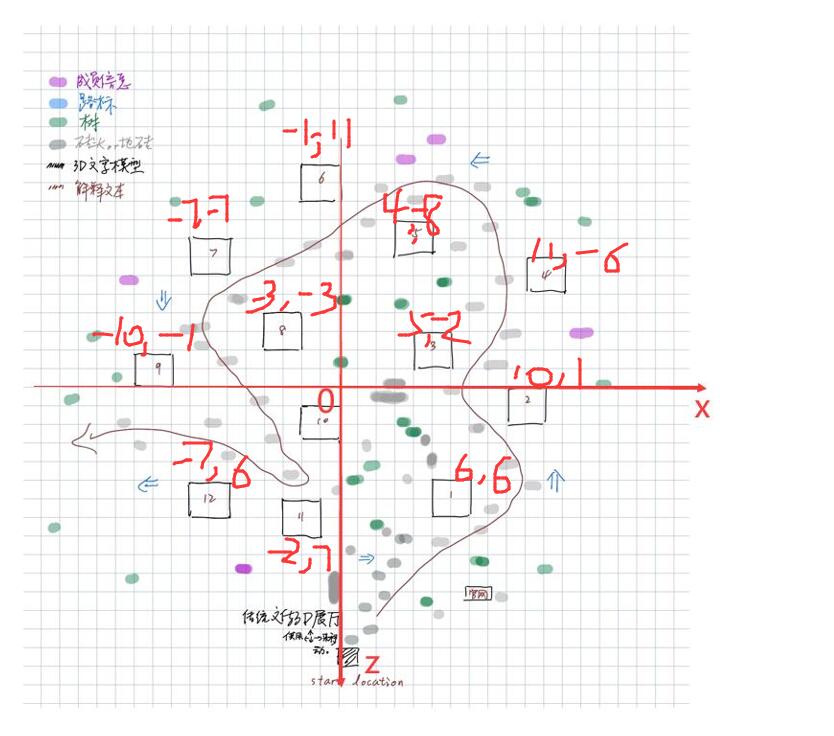 成员信息
路标
树
石头or地砖
3D文字模型
解释文本
-1,11
6
-7,-7
7
4,-8
5
11,-6
4
-3,-3
8
5,-2
3
-10,-1
9
10,1
2
0
X
10
-7,6
12
6,6
1
11
-2,7
官网
传统文化3D展厅
使用
动。
Z
start location